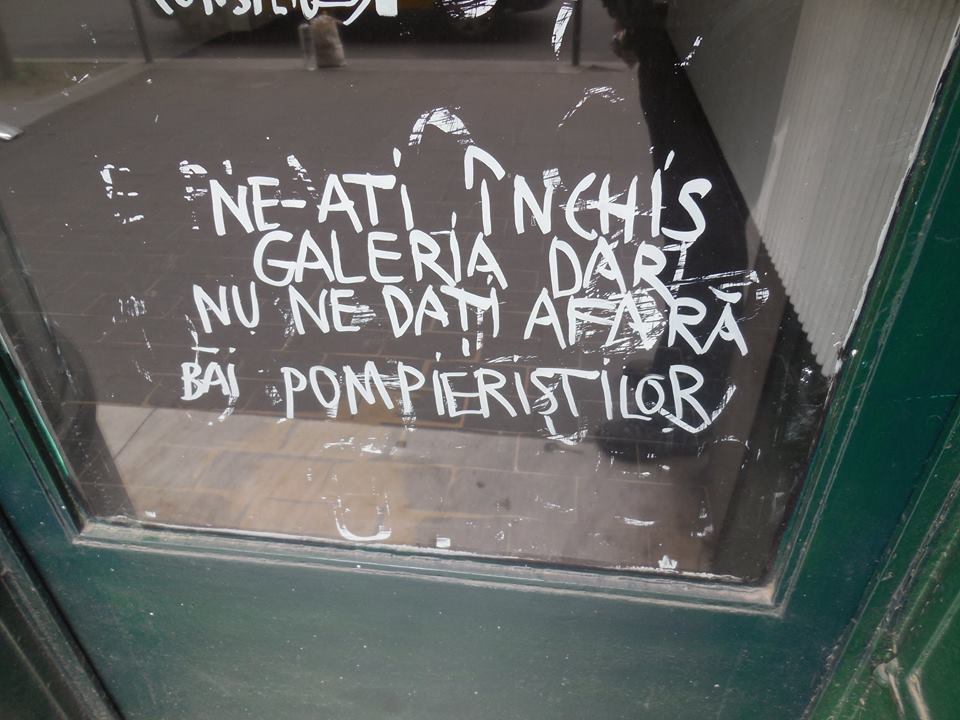 NE-AȚI ÎNCHIS
GALERIA DAR
NU NE DAȚI AFARĂ
BĂI POMPIERIȘTILOR